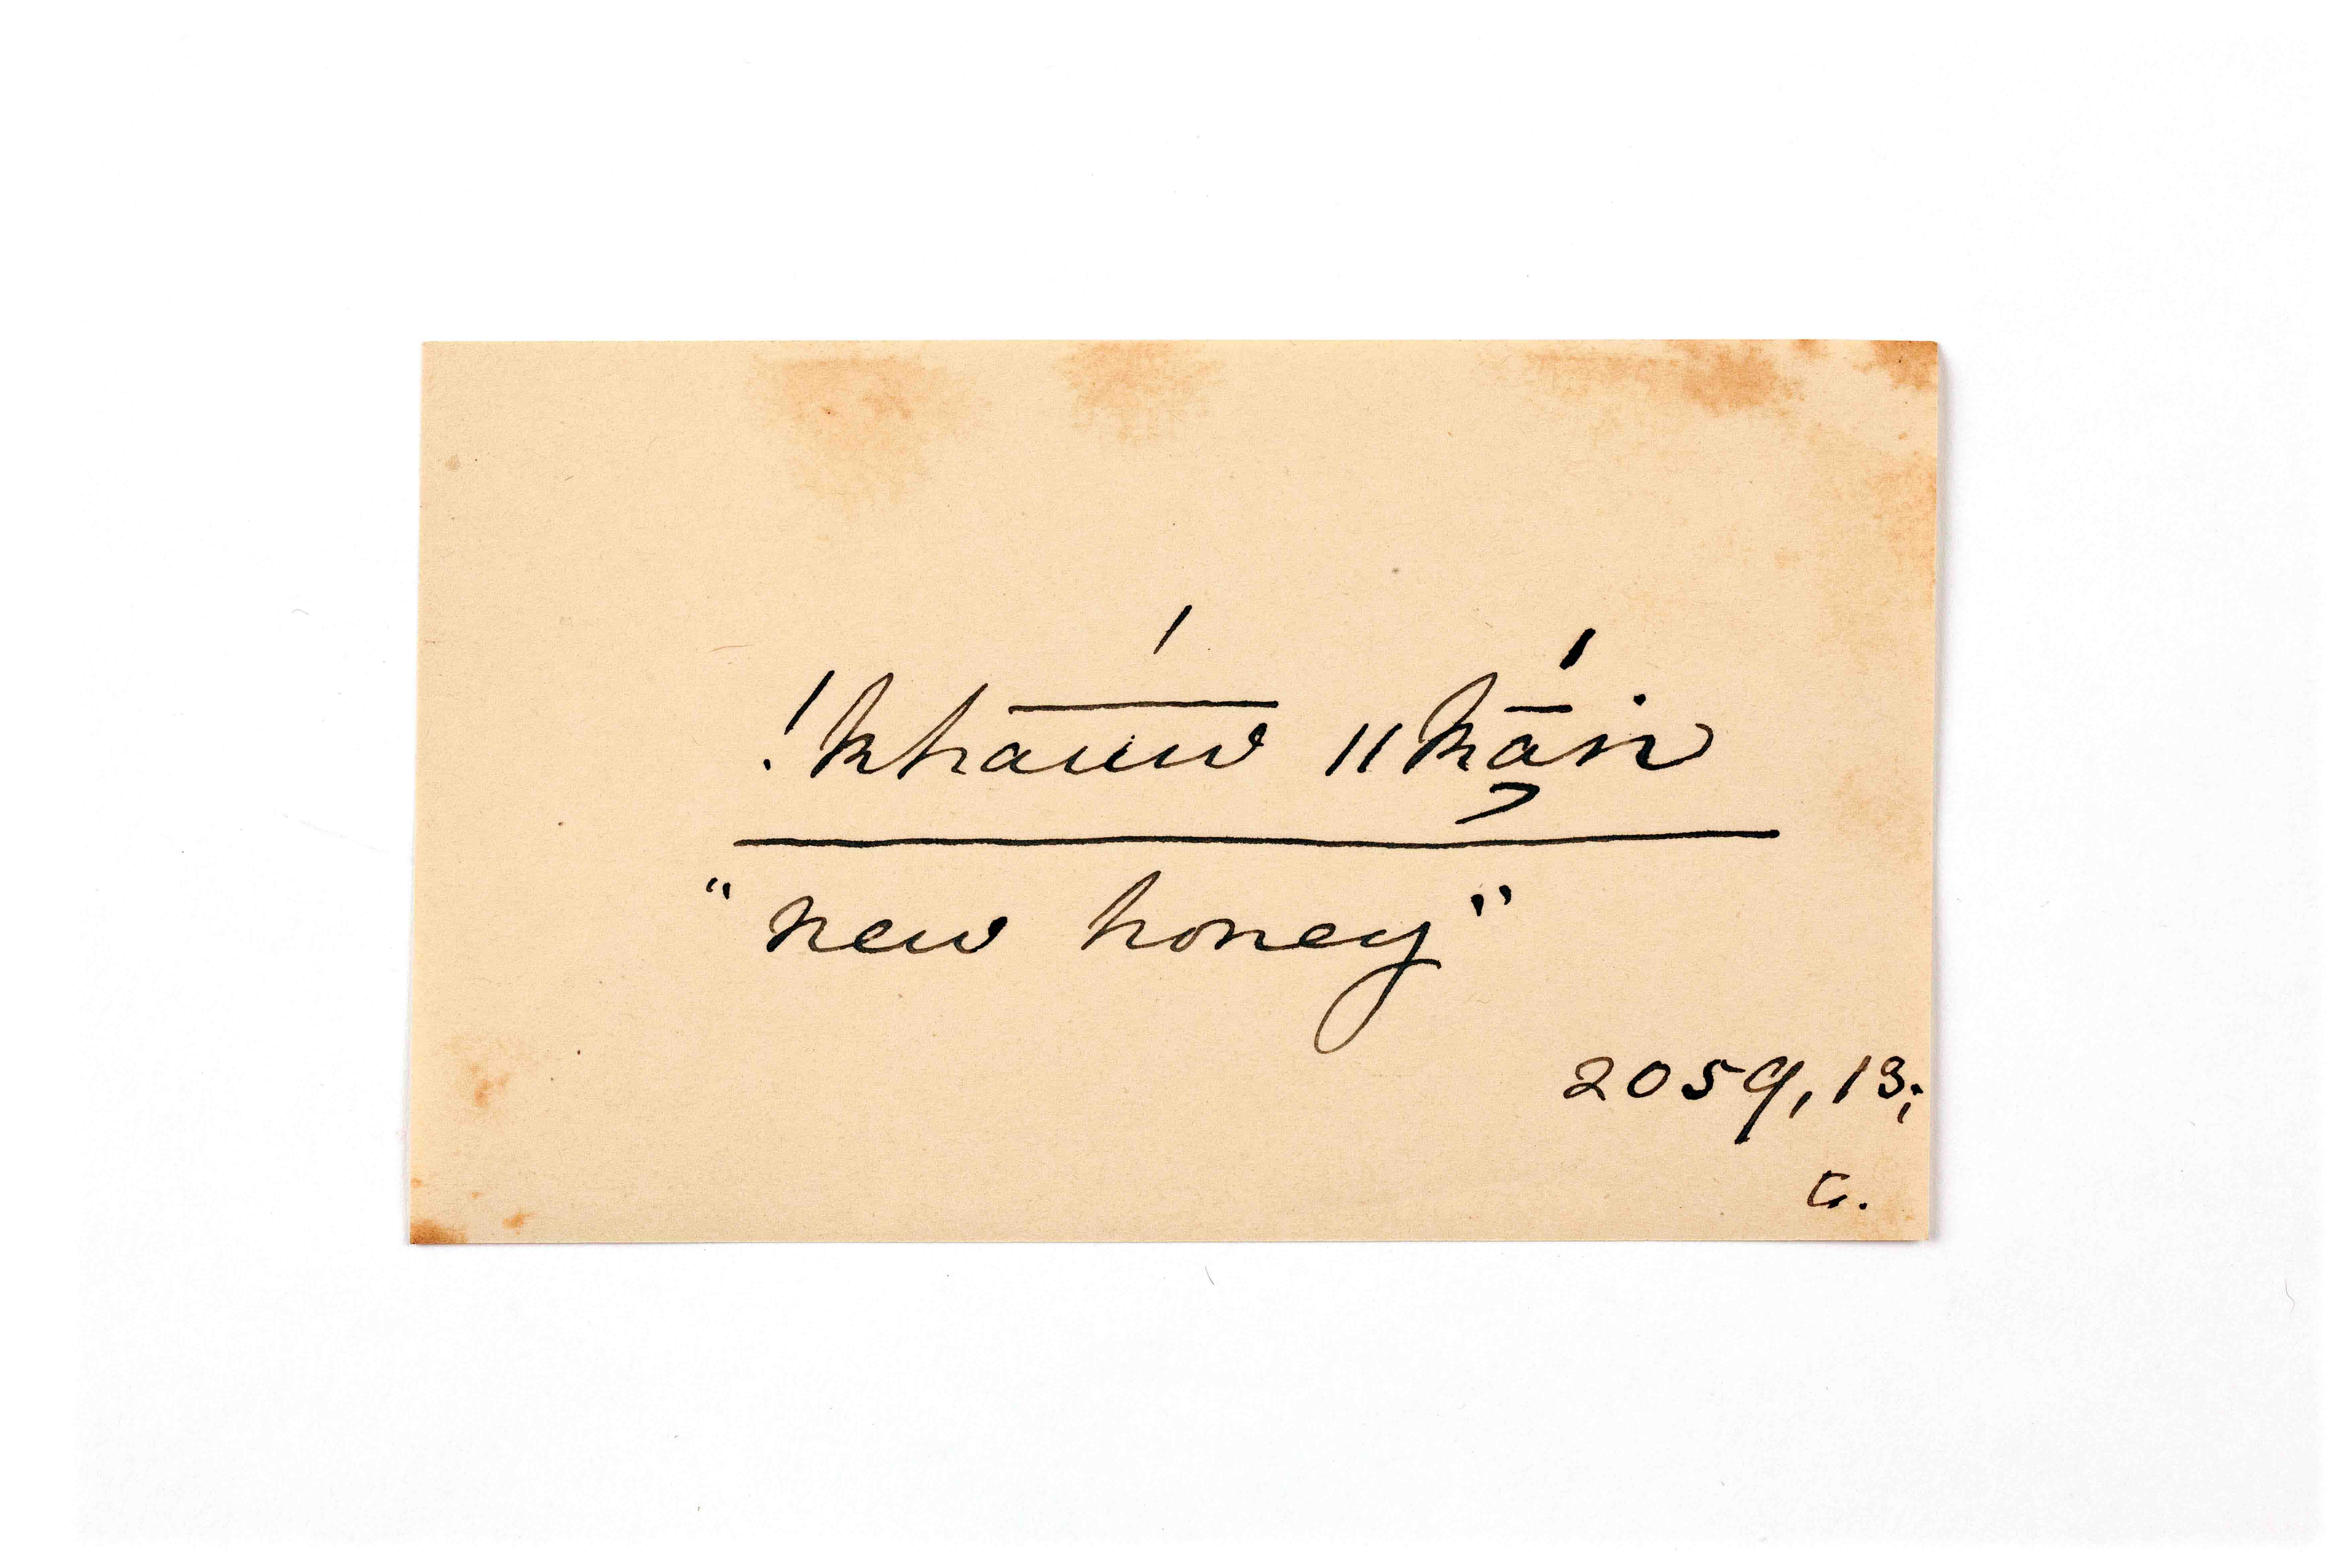 !kha͞u͞ŵ́ ǁkā̯́in
"new honey"
2059, 13;
G.